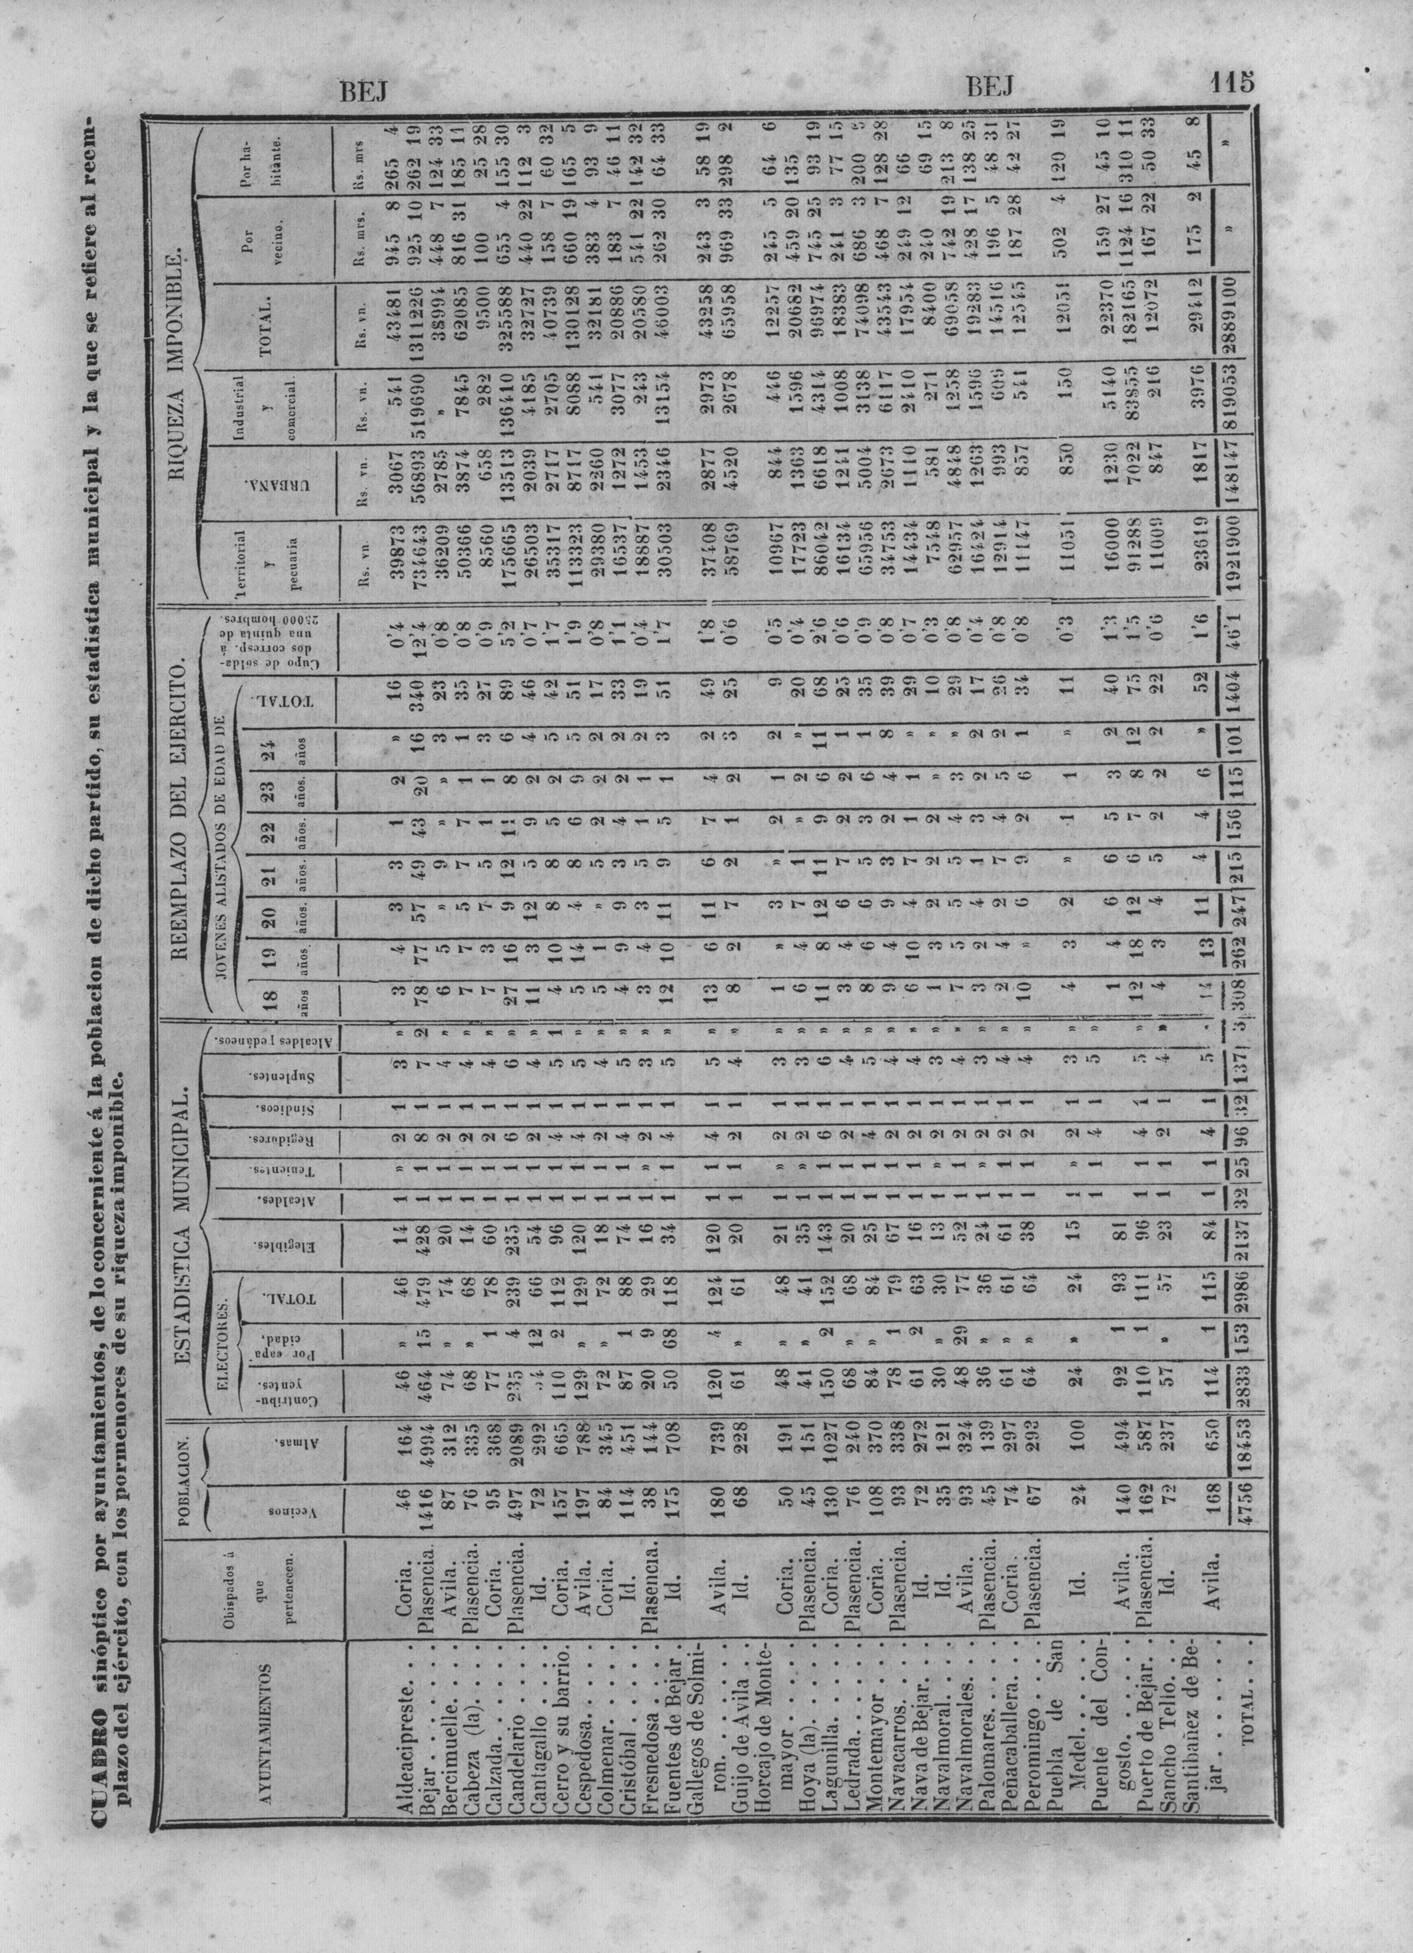 BEJ BEJ 115
CUADRO sinóptico por ayuntamientos, de lo concerniente á la poblacion de dicho partido, su estadística municipal y la que se refiere al reem-
plazo del ejército, con los pormenores de su riqueza imponible.
POBLACION. ESTADISTICA MUNICIPAL. REEMPLAZO DEL EJERCITO. RIQUEZA IMPONIBLE.
ELECTORES. JOVENES ALISTADOS DE EDAD DE
AYUNTAMIENTOS Obispados á que pertenecen. Vecinos Almas. Contribu-yentes. Por capa-cidad, TOTAL. Elegibles. Alcaldes. Tenientes. Regidores. Síndicos. Suplentes. Alcaldes pedáneos. 18 años 19 años. 20 años. 21 años. 22 años. 23 años. 24 años TOTAL. Cupo de solda-dos corresp. á una quinta de 25000 hombres. Territorial y pecuaria URBANA. Industrial y comercial. TOTAL. Por vecino. Por ha-bitante.
Rs. vn. Rs. vn. Rs. vn. Rs. vn. Rs. mrs. Rs. mrs
Aldeacipreste. . . Coria. 46 164 46 » 46 14 1 » 2 1 3 » 3 4 3 3 1 2 » 16 0'4 39873 3067 541 43481 945 8 265 4
Bejar. . . . . . Plasencia. 1416 4994 464 15 479 428 1 1 8 1 7 2 78 77 57 49 43 20 16 340 12'4 734643 56893 519690 1311226 925 10 262 19
Bercimuelle. . . . Avila. 87 312 74 » 74 20 1 1 2 1 4 » 6 5 » 9 » » 3 23 0'8 36209 2785 » 38994 448 7 124 33
Cabeza (la). . . . Plasencia. 76 335 68 » 68 14 1 1 2 1 4 » 7 7 5 7 7 1 1 35 0'8 50366 3874 7845 62085 816 31 185 11
Calzada. . . . . Coria. 95 368 77 1 78 60 1 1 2 1 4 » 7 3 7 5 1 1 3 27 0'9 8560 658 282 9500 100 25 28
Candelario . . . . Plasencia. 497 2089 235 4 239 235 1 1 6 1 6 » 27 16 9 12 11 8 6 89 5'2 175665 13513 136410 325588 655 4 155 30
Cantagallo . . . . Id. 72 292 54 12 66 54 1 1 2 1 4 » 11 3 12 5 9 2 4 46 0'7 26503 2039 4185 32727 440 22 112 3
Cerro y su barrio. Coria. 157 665 110 2 112 96 1 1 4 1 5 1 4 10 8 8 5 2 5 42 1'7 35317 2717 2705 40739 158 7 60 32
Cespedosa. . . . Avila. 197 788 129 » 129 120 1 1 4 1 5 » 5 14 4 8 6 9 5 51 1'9 113323 8717 8088 130128 660 19 165 5
Colmenar. . . . . Coria. 84 345 72 » 72 18 1 1 2 1 4 » 5 1 » 5 2 2 2 17 0'8 29380 2260 541 32181 383 4 93 9
Cristóbal . . . . Id. 114 451 87 1 88 74 1 1 4 1 5 » 4 9 9 3 4 2 2 33 1'1 16537 1272 3077 20886 183 7 46 11
Fresnedosa . . . . Plasencia. 38 144 20 9 29 16 1 » 2 1 3 » 3 4 3 5 1 1 2 19 0'4 18887 1453 243 20580 541 22 142 32
Fuentes de Bejar . Id. 175 708 50 68 118 34 1 1 4 1 5 » 12 10 11 9 5 1 3 51 1'7 30503 2346 13154 46003 262 30 64 33
Gallegos de Solmi-
ron. . . . . . Avila. 180 739 120 4 124 120 1 1 4 1 5 » 13 6 11 6 7 4 2 49 1'8 37408 2877 2973 43258 243 3 58 19
Guijo de Avila . . Id. 68 228 61 » 61 20 1 1 2 1 4 » 8 2 7 2 1 2 3 25 0'6 58769 4520 2678 65958 969 33 298 2
Horcajo de Monte-
mayor . . . . . Coria. 50 191 48 » 48 21 1 » 2 1 3 » 1 » 3 » 2 1 2 9 0'5 10967 844 446 12257 245 5 64 6
Hoya (la). . . . . Plasencia. 45 151 41 » 41 35 1 » 2 1 3 » 6 4 7 1 » 2 » 20 0'4 17723 1363 1596 20682 459 20 135
Lagunilla. . . . . Coria. 130 1027 150 2 152 143 1 1 6 1 6 » 11 8 12 11 9 6 11 68 2'6 86042 6618 4314 96974 745 25 93 19
Ledrada. . . . . Plasencia. 76 240 68 » 68 20 1 1 2 1 4 » 3 4 6 7 2 2 1 25 0'6 16134 1241 1008 18383 241 3 77 15
Montemayor . . . Coria. 108 370 84 » 84 25 1 1 4 1 5 » 8 6 6 5 3 6 1 35 0'9 65956 5004 3138 74098 686 3 200
Navacarros. . . . Plasencia. 93 338 78 1 79 67 1 1 2 1 4 » 9 4 9 3 2 4 8 39 0'8 34753 2673 6117 43543 468 7 128 28
Nava de Bejar. . . Id. 72 272 61 2 63 16 1 1 2 1 4 » 6 10 4 7 1 1 » 29 0'7 14434 1110 2410 17954 249 12 66
Navalmoral. . . . Id. 35 121 30 » 30 13 1 » 2 1 3 » 1 3 2 2 2 » » 10 0'3 7548 581 271 8400 240 69 15
Navalmorales. . . Avila. 93 324 48 29 77 52 1 1 2 1 4 » 7 5 5 5 4 3 » 29 0'8 62957 4848 1258 69058 742 19 213 8
Palomares. . . . . Plasencia. 45 139 36 » 36 24 1 » 2 1 3 » 3 2 4 1 3 2 2 17 0'4 16424 1263 1596 19283 428 17 138 25
Peñacaballera. . . Coria. 74 297 61 » 61 61 1 1 2 1 4 » 2 4 2 7 4 5 2 26 0'8 12914 993 609 14516 196 5 48 31
Peromingo . . . . Plasencia. 67 293 64 » 64 38 1 1 2 1 4 » 10 » 6 9 2 6 1 34 0'8 11147 857 541 12545 187 28 42 27
Puebla de San
Medel. . . . . Id. 24 100 24 » 24 15 1 » 2 1 3 » 4 3 2 » 1 1 » 11 0'3 11051 850 150 12051 502 4 120 19
Puente del Con-
gosto. . . . . . Avila. 140 494 92 1 93 81 1 1 4 1 5 » 1 4 6 6 5 3 2 40 1'3 16000 1230 5140 22370 159 27 45 10
Puerto de Bejar. . Plasencia. 162 587 110 1 111 96 1 1 4 1 5 » 12 18 12 6 7 8 12 75 1'5 91288 7022 83855 182165 1124 16 310 11
Sancho Tello. . . . Id. 72 237 57 » 57 23 1 1 2 1 4 » 4 3 4 5 2 2 2 22 0'6 11009 847 216 12072 167 22 50 33
Santibañez de Be-
jar . . . . . . Avila. 168 650 114 1 115 84 1 1 4 1 5 14 13 11 4 4 6 » 52 1'6 23619 1817 3976 29412 175 2 45 8
TOTAL . . . 4756 18453 2833 153 2986 2137 32 25 96 32 137 3 308 262 247 215 156 115 101 1404 46'1 1921900 148147 819053 2889100 » »